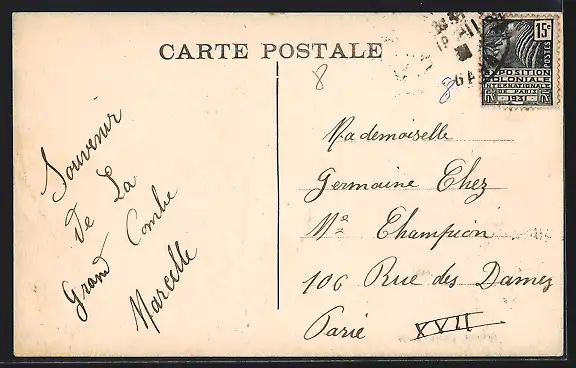 CARTE POSTALE
8
8
15c
POSTES
EXPOSITION
COLONIALE
INTERNATIONALE
DE PARIS
1931
GARD
Souvenir
de La
Grand Combe
Marcelle
Mademoiselle
Germaine Chez
Me Champion
106 Rue des Dames
Paris XVII